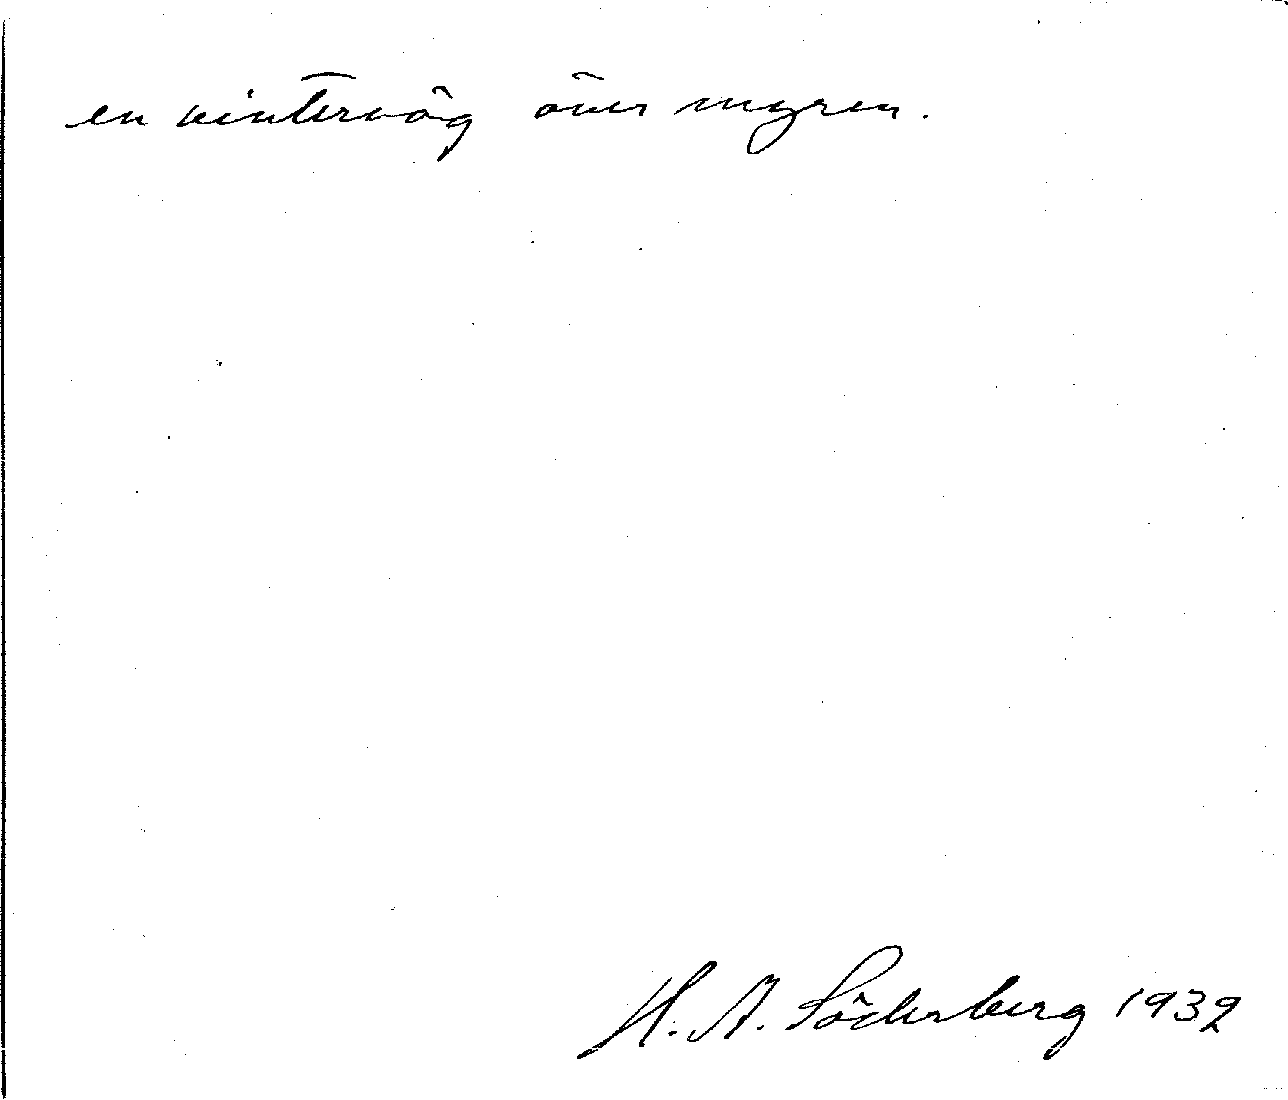 en vinterväg över myren.
H. A. Söderberg 1932